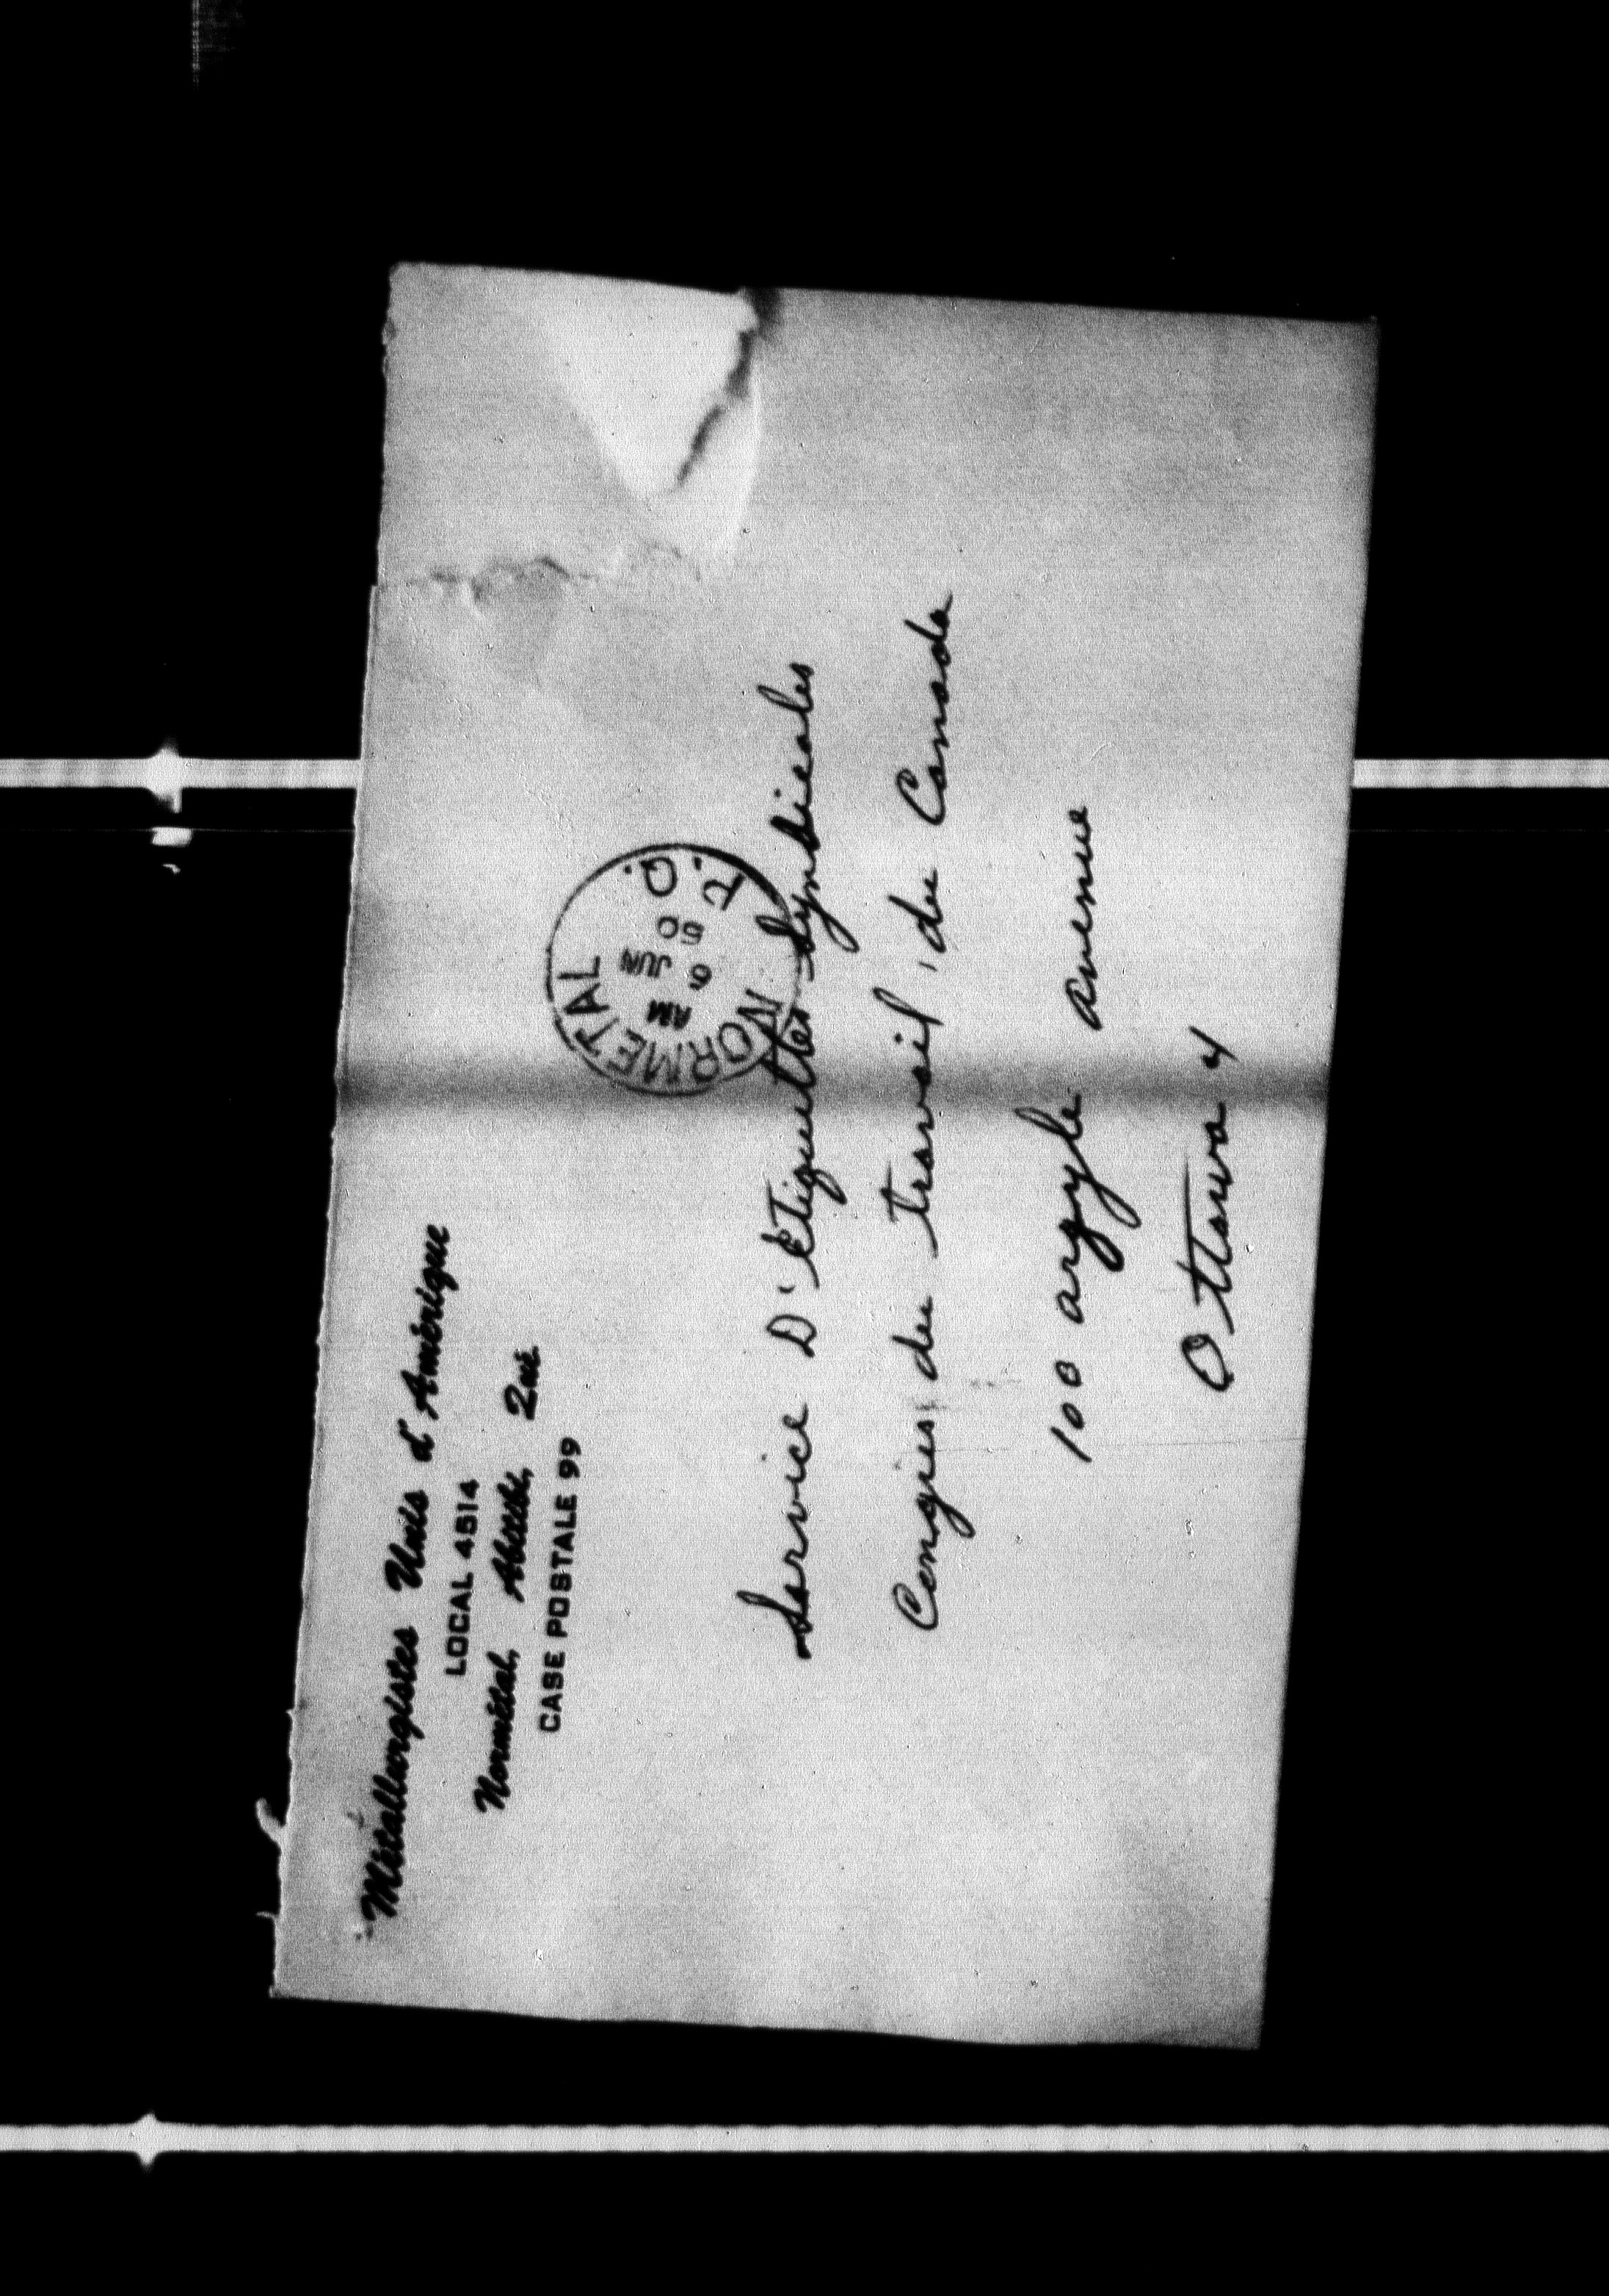 Métallurgistes Unis d'Amérique
LOCAL 4514
Normétal, Abitibi, Qué.
CASE POSTALE 99
NORMETAL
AM
6
JUN
50
P.Q.
Service D'étiquettes Syndicales
Congres du travail du Canada
100 argyle avenue
Ottawa 4